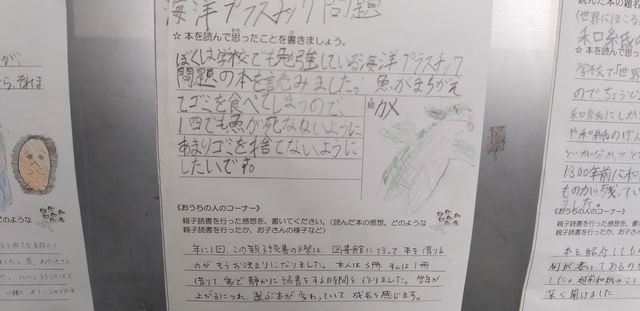 海洋プラスチック問題
☆ 本を読んで思ったことを書きましょう。
ぼくは学校でも勉強している海洋プラスチック
問題の本を読みました。魚がまちがえ
てゴミを食べてしまうので、
1匹でも魚が死なないように
あまりゴミを捨てないように
したいです。
絵 カメ
《おうちの人のコーナー》
親子読書を行った感想を、書いてください。(読んだ本の感想、どのような
親子読書を行ったか、お子さんの様子など)
年に1回、この親子読書の際は、図書館に行って本を借りる
のがもうお決まりになりました。本人は3冊 私は1冊
借りて家で静かに読書をする時間を作りました。学年が
上がるにつれ、選ぶ本が変わっていて成長を感じます。
読んだ本の題名
(世界にほこる
和紙
☆本を読んで
学校で「世界
のでちょうど
1300年前に和
ものが残ってい
ました。
《おうちの人のコーナー》
親子読書を行った感想を、書
親子読書を行ったか、お子さん
本を紹介しても
何が書いてあるの
した。越前和紙の
深く聞けました
のような